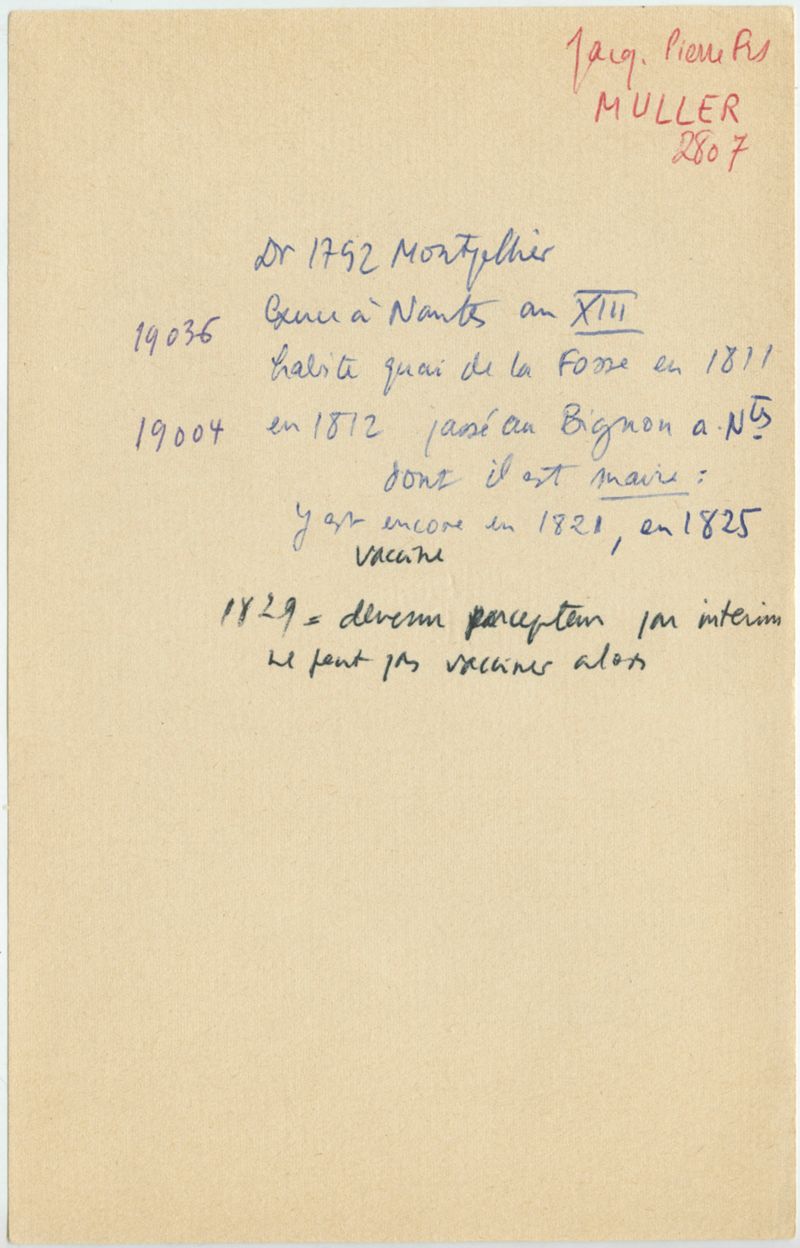 Jacq. Pierre Frs
MULLER
2807
Dr 1792 Montpellier
19036 Exerce à Nantes an XIII
habite quai de la Fosse en 1811
19004 en 1812 passé au Bignon a. Nts
dont il est maire :
y est encore en 1821, en 1825
vaccine
1829 = devenu percepteur par interim
ne peut pas vacciner alors